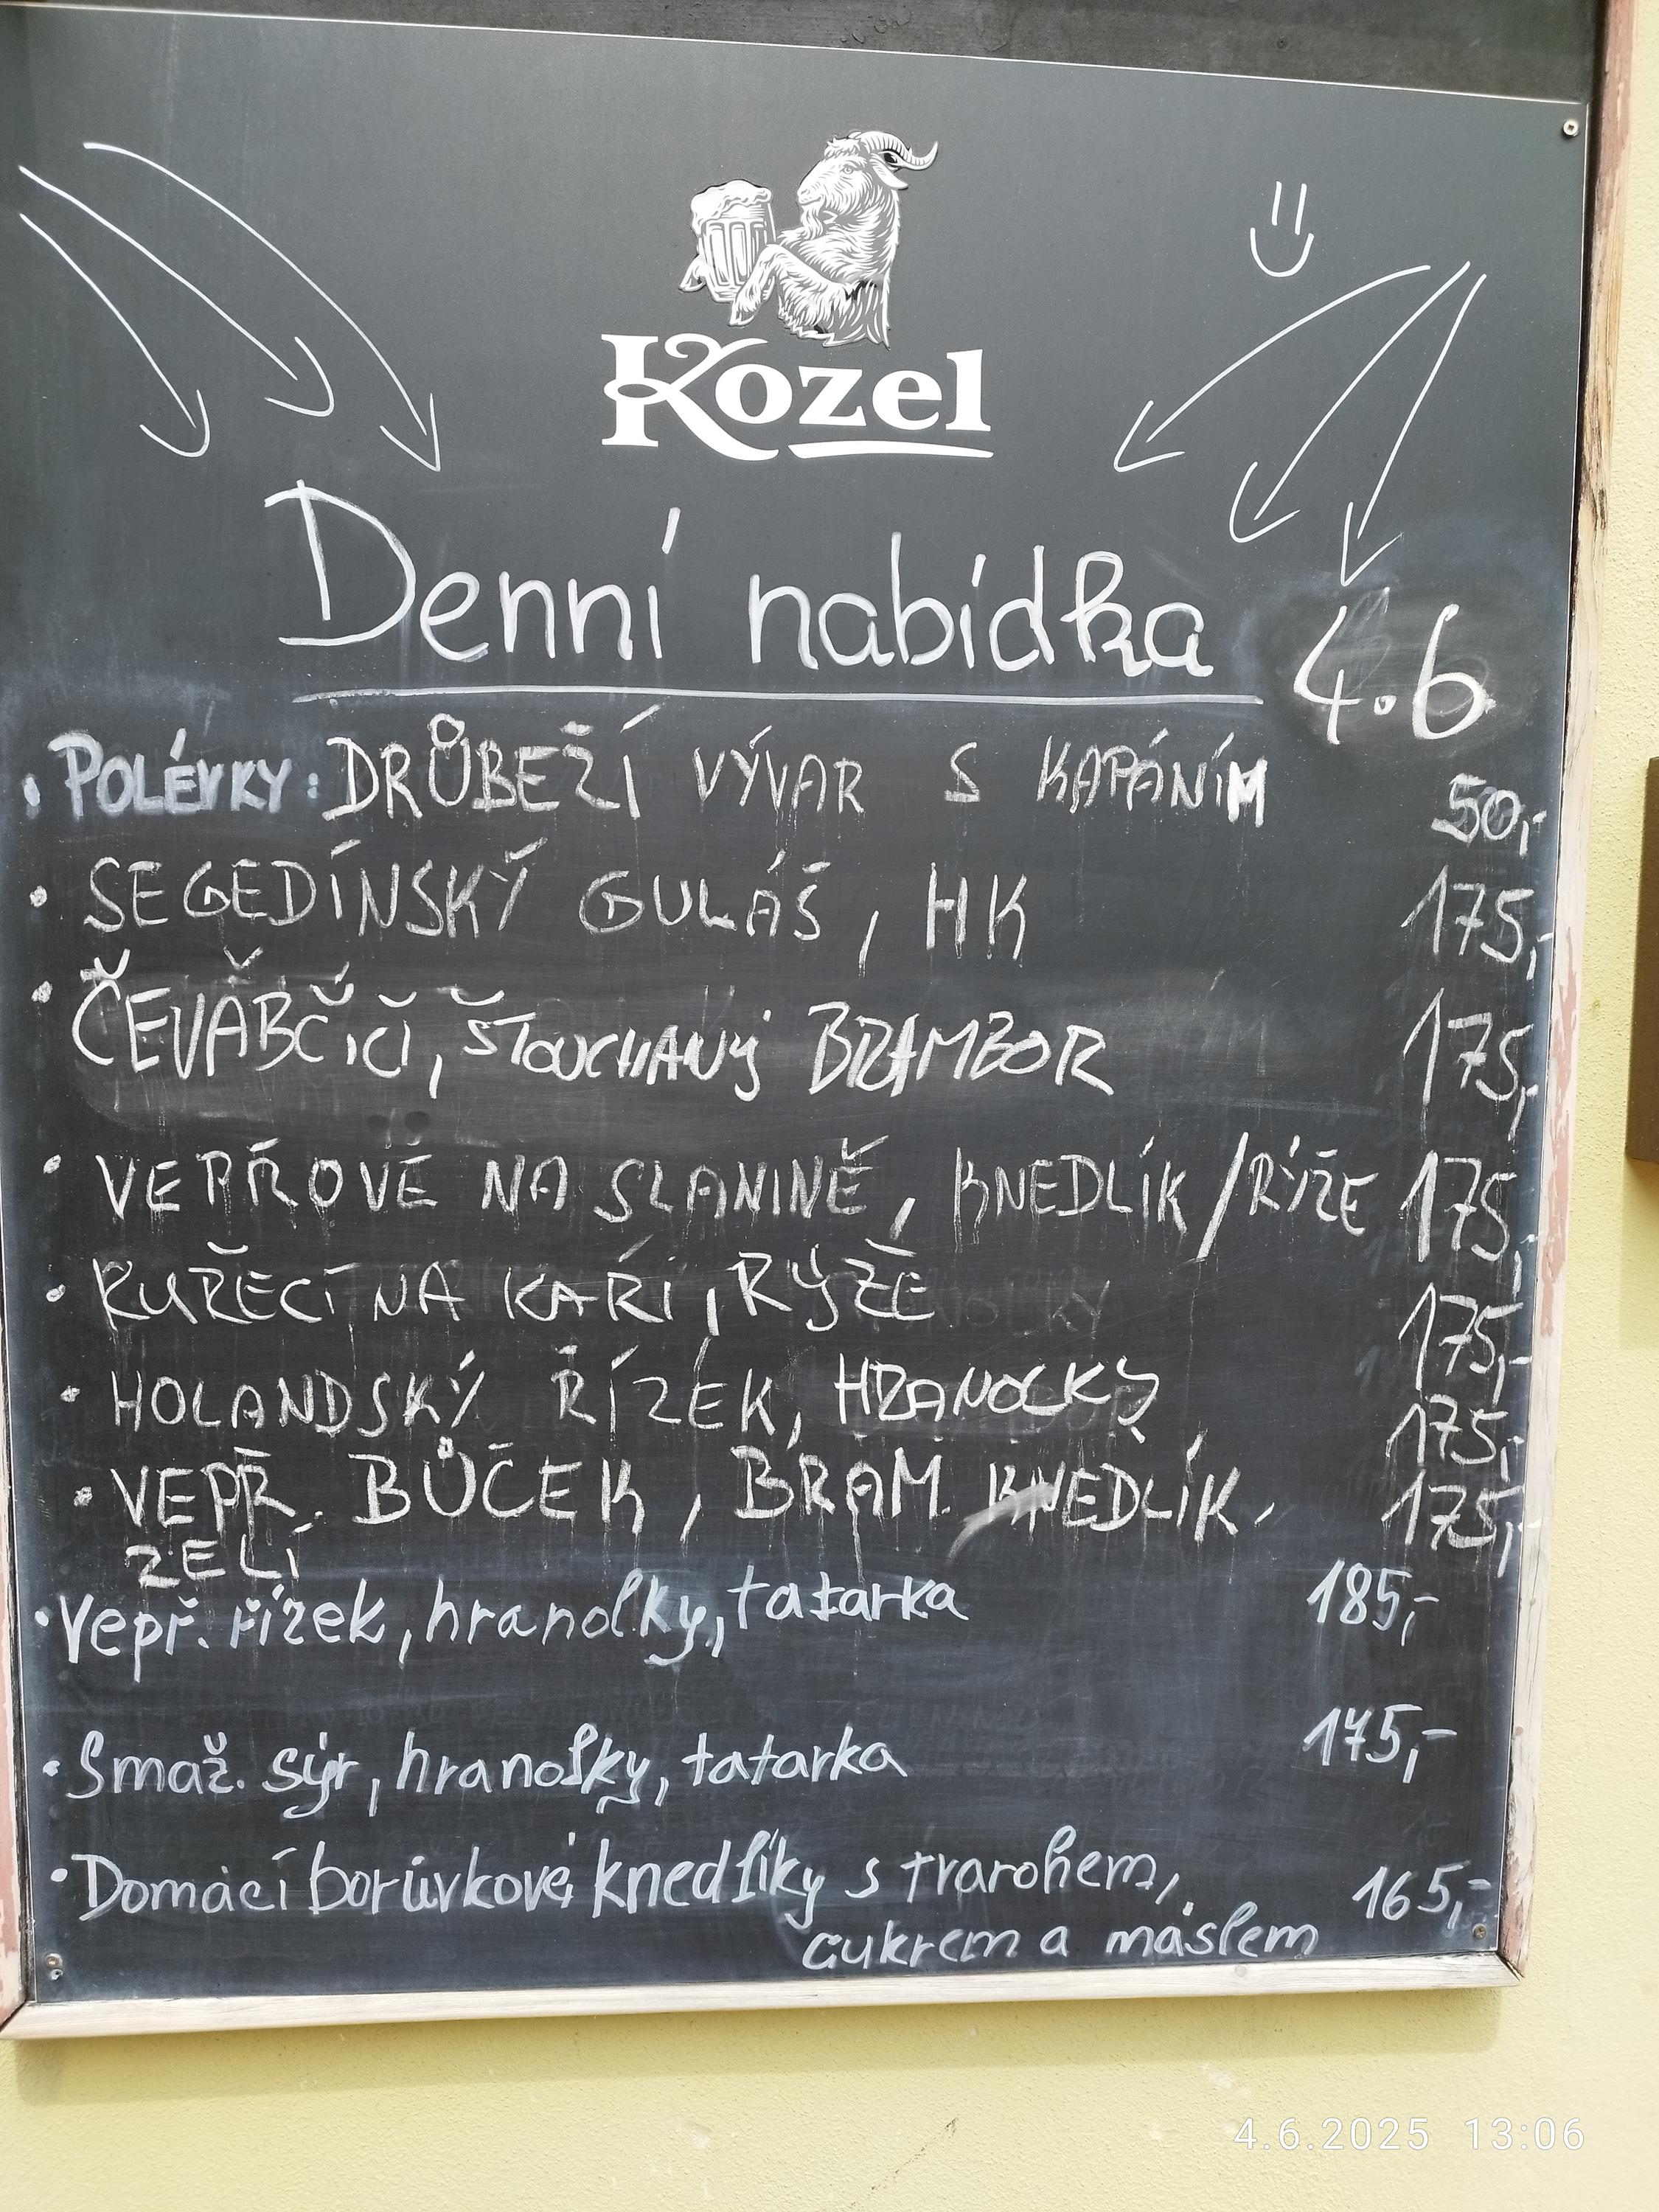 Kozel
Denní nabídka 4.6
• POLÉVKY: DRŮBEŽÍ VÝVAR S KAPÁNÍM 50,-
• SEGEDÍNSKÝ GULÁŠ, HK 175,-
• ČEVABČIČI, ŠŤOUCHANÝ BRAMBOR 175,-
• VEPŘOVÉ NA SLANINĚ, KNEDLÍK/RÝŽE 175,-
• KUŘECÍ NA KARI, RÝŽE 175,-
• HOLANDSKÝ ŘÍZEK, HRANOLKY 175,-
• VEPŘ. BŮČEK, BRAM. KNEDLÍK, 175,-
ZELÍ
• Vepř. řízek, hranolky, tatarka 185,-
• Smaž. sýr, hranolky, tatarka 175,-
• Domácí borůvkové knedlíky s tvarohem, 165,-
cukrem a máslem
4.6.2025 13:06